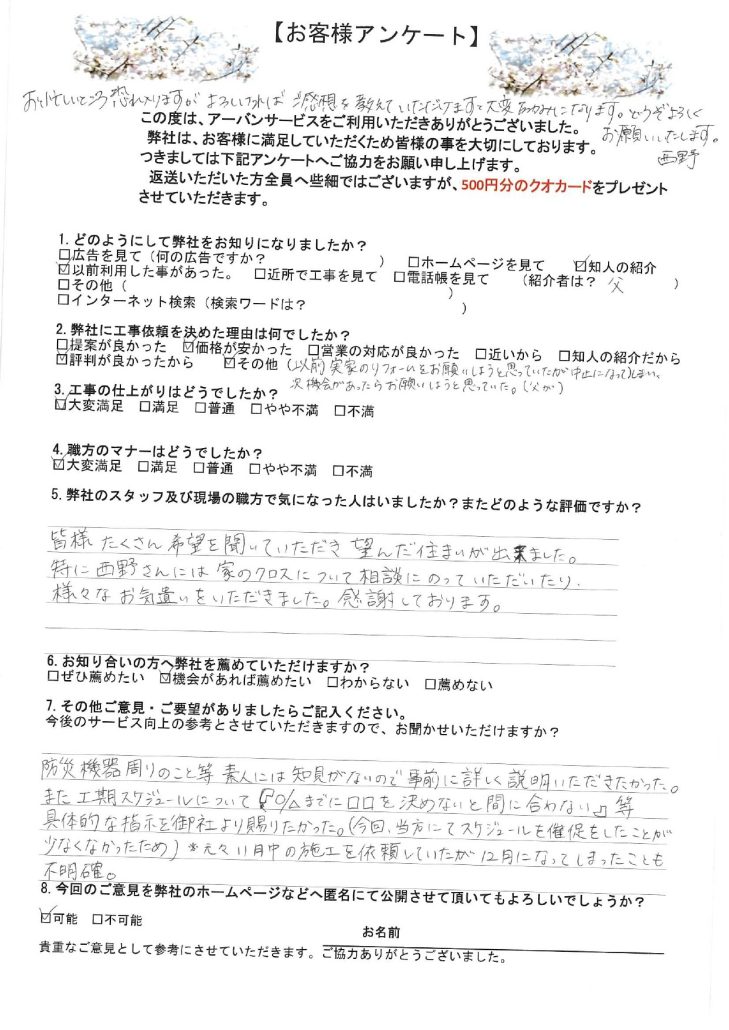 【お客様アンケート】
お忙しいところ恐れ入りますが よろしければ ご感想を教えていただけますと大変励みになります。どうぞよろしく
お願いいたします。
西野
この度は、アーバンサービスをご利用いただきありがとうございました。
弊社は、お客様に満足していただくため皆様の事を大切にしております。
つきましては下記アンケートへご協力をお願い申し上げます。
返送いただいた方全員へ些細ではございますが、500円分のクオカードをプレゼント
させていただきます。
1. どのようにして弊社をお知りになりましたか?
□広告を見て(何の広告ですか? ) □ホームページを見て ☑知人の紹介
☑以前利用した事があった。 □近所で工事を見て □電話帳を見て (紹介者は? 父 )
□その他( )
□インターネット検索(検索ワードは? )
2. 弊社に工事依頼を決めた理由は何でしたか?
□提案が良かった ☑価格が安かった □営業の対応が良かった □近いから □知人の紹介だから
☑評判が良かったから ☑その他(以前実家のリフォームをお願いしようと思っていたが中止になってしまい、
次機会があったらお願いしようと思っていた。(父が)
3. 工事の仕上がりはどうでしたか?
☑大変満足 □満足 □普通 □やや不満 □不満
4. 職方のマナーはどうでしたか?
☑大変満足 □満足 □普通 □やや不満 □不満
5. 弊社のスタッフ及び現場の職方で気になった人はいましたか?またどのような評価ですか?
皆様 たくさん希望を聞いていただき 望んだ住まいが出来ました。
特に西野さんには家のクロスについて相談にのっていただいたり、
様々なお気遣いをいただきました。感謝しております。
6. お知り合いの方へ弊社を薦めていただけますか?
□ぜひ薦めたい ☑機会があれば薦めたい □わからない □薦めない
7. その他ご意見・ご要望がありましたらご記入ください。
今後のサービス向上の参考とさせていただきますので、お聞かせいただけますか?
防災機器周りのこと等 素人には知見がないので事前に詳しく説明いただきたかった。
また工期スケジュールについて『〇/△までに口口を決めないと間に合わない』等
具体的な指示を御社より賜りたかった。(今回、当方にてスケジュールを催促をしたことが
少なくなかったため) *元々11月中の施工を依頼していたが12月になってしまったことも
不明確。
8. 今回のご意見を弊社のホームページなどへ匿名にて公開させて頂いてもよろしいでしょうか?
☑可能 □不可能
お名前
貴重なご意見として参考にさせていただきます。ご協力ありがとうございました。